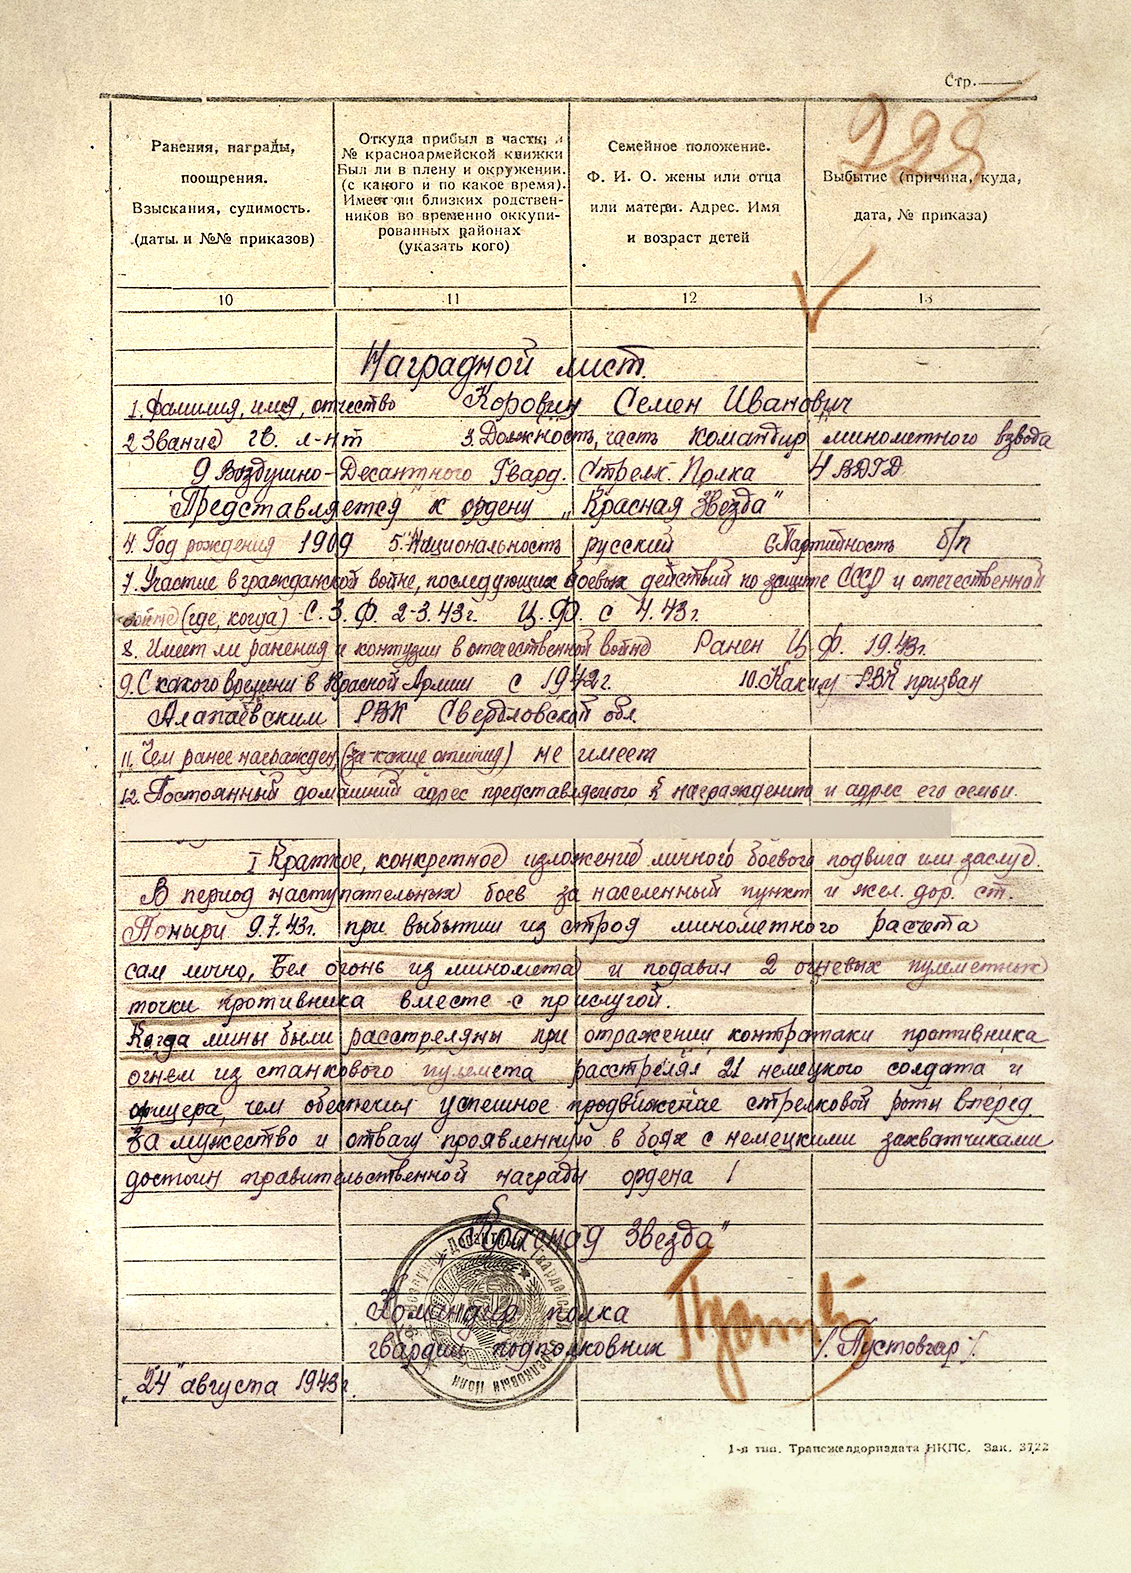 Стр.
228
Ранения, награды,
поощрения.
Взыскания, судимость.
(даты и №№ приказов)
Откуда прибыл в часть, и
№ красноармейской книжки
Был ли в плену и окружении.
(с какого и по какое время).
Имеет ли близких родствен-
ников во временно оккупи-
рованных районах
(указать кого)
Семейное положение.
Ф. И. О. жены или отца
или матери. Адрес. Имя
и возраст детей
Выбытие (причина, куда,
дата, № приказа)
10 11 12 13
Наградной лист.
1. Фамилия, имя, отчество Коровин Семен Иванович
2 Звание гв. л-нт 3. Должность, часть командир минометного взвода
9 Воздушно-Десантного Гвард. Стрелк. Полка 4 ВДГД.
Представляется к ордену „Красная Звезда"
4. Год рождения 1909 5. Национальность русский 6 Партийность б/п
7. Участие в гражданской войне, последующих боевых действий по защите СССР и отечественной
войне (где, когда) С. З. Ф. 2-3. 43г. Ц. Ф. с 4. 43г.
8. Имеет ли ранения и контузии в отечественной войне Ранен Ц. Ф. 19.43г.
9. С какого времени в Красной Армии с 1942г. 10. Каким РВК призван
Алапаевским РВК Свердловской обл.
11. Чем ранее награжден (за какие отличия) не имеет
12. Постоянный домашний адрес представляемого к награждению и адрес его семьи.
I Краткое, конкретное изложение личного боевого подвига или заслуг.
В период наступательных боев за населенный пункт и жел. дор. ст.
Поныри 9.7.43г. при выбытии из строя минометного расчета
сам лично, вел огонь из миномета и подавил 2 огневых пулеметных
точки противника вместе с прислугой.
Когда мины были расстреляны при отражении контратаки противника
огнем из станкового пулемета расстрелял 21 немецкого солдата и
офицера, чем обеспечил успешное продвижение стрелковой роты вперед
За мужество и отвагу проявленную в боях с немецкими захватчиками
достоин правительственной награды ордена
„Красная Звезда"
Командир полка
гвардии подполковник /Пустовгар/.
„24" августа 1943г.
1-я тип. Трансжелдориздата НКПС. Зак. 3722